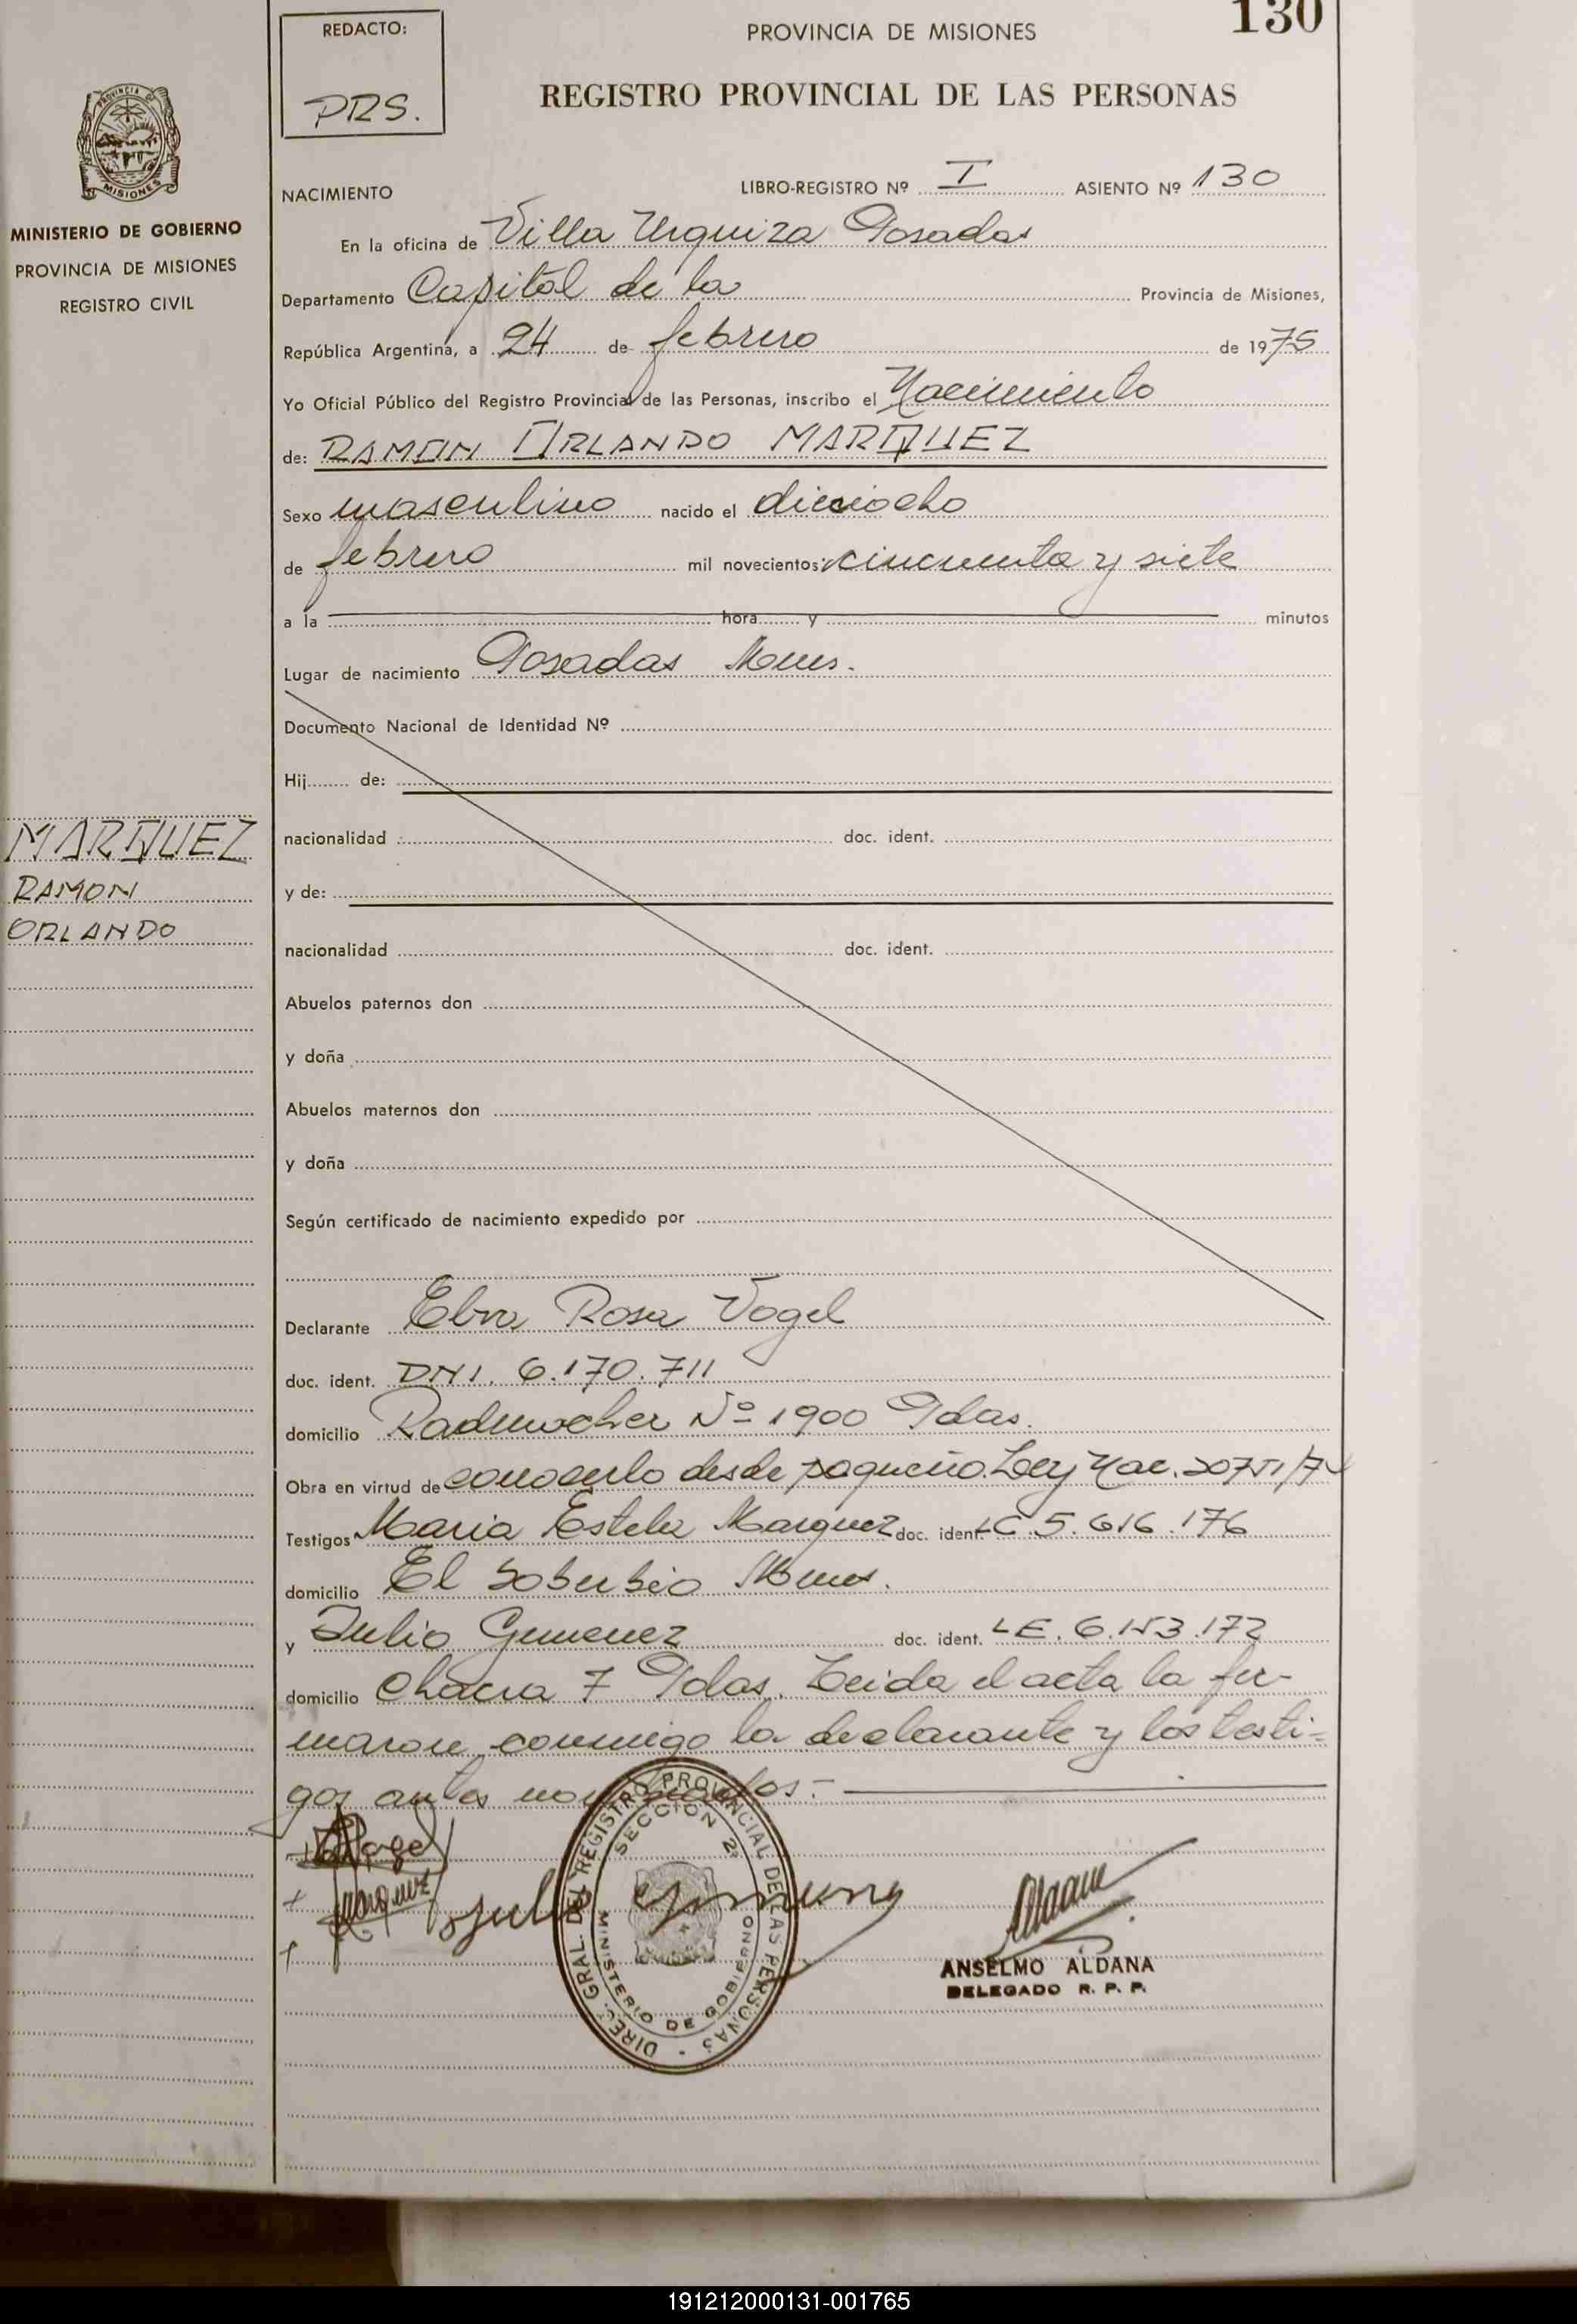 130
REDACTO:
PRS.
PROVINCIA DE MISIONES
REGISTRO PROVINCIAL DE LAS PERSONAS
PROVINCIA DE
MISIONES
MINISTERIO DE GOBIERNO
PROVINCIA DE MISIONES
REGISTRO CIVIL
MARQUEZ
RAMON
ORLANDO
NACIMIENTO LIBRO-REGISTRO Nº I ASIENTO Nº 130
En la oficina de Villa Urquiza Posadas
Departamento Capital de la Provincia de Misiones,
República Argentina, a 24 de febrero de 1975
Yo Oficial Público del Registro Provincial de las Personas, inscribo el Nacimiento
de: RAMON ORLANDO MARQUEZ
Sexo masculino nacido el dieciocho
de febrero mil novecientos cincuenta y siete
a la hora y minutos
Lugar de nacimiento Posadas Mnes.
Documento Nacional de Identidad Nº
Hij de:
nacionalidad doc. ident.
y de:
nacionalidad doc. ident.
Abuelos paternos don
y doña
Abuelos maternos don
y doña
Según certificado de nacimiento expedido por
Declarante Elva Rosa Vogel
doc. ident. DNI. 6.170.711
domicilio Rademacher Nº 1900 Pdas.
Obra en virtud de conocerlo desde pequeño. Ley Nac. 20751/74
Testigos Maria Estela Marquez doc. ident. LC 5.616.176
domicilio El Soberbio Mnes.
y Julio Gimenez doc. ident. LE. 6.153.172
domicilio Chacra 7 Pdas. Leida el acta la fir-
maron conmigo la declarante y los testi-
gos antes nombrados.-
DIREC. GRAL. DEL REGISTRO PROVINCIAL DE LAS PERSONAS
SECCION 2ª
MINISTERIO DE GOBIERNO
ANSELMO ALDANA
DELEGADO R. P. P.
191212000131-001765